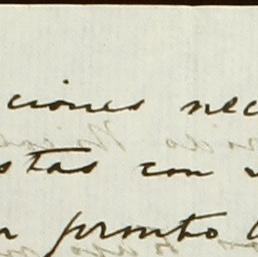 ciones nec
stas con
pronto